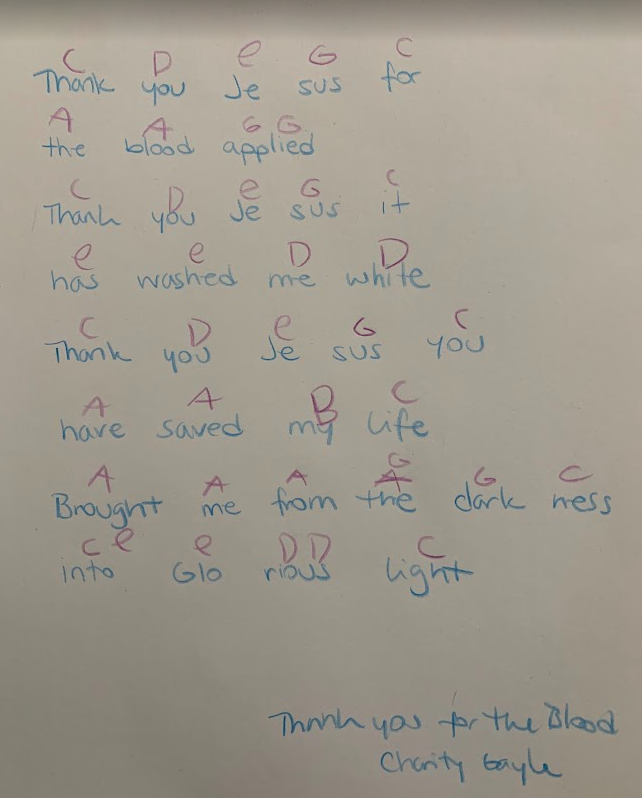 C D e G C
Thank you Je sus for
A A G G
the blood applied
C D e G C
Thank you Je sus it
e e D D
has washed me white
C D e G C
Thank you Je sus you
A A B C
have saved my life
A A A G A G C
Brought me from the dark ness
C e e D D C
into Glo rious light
Thank you for the Blood
Charity Gayle